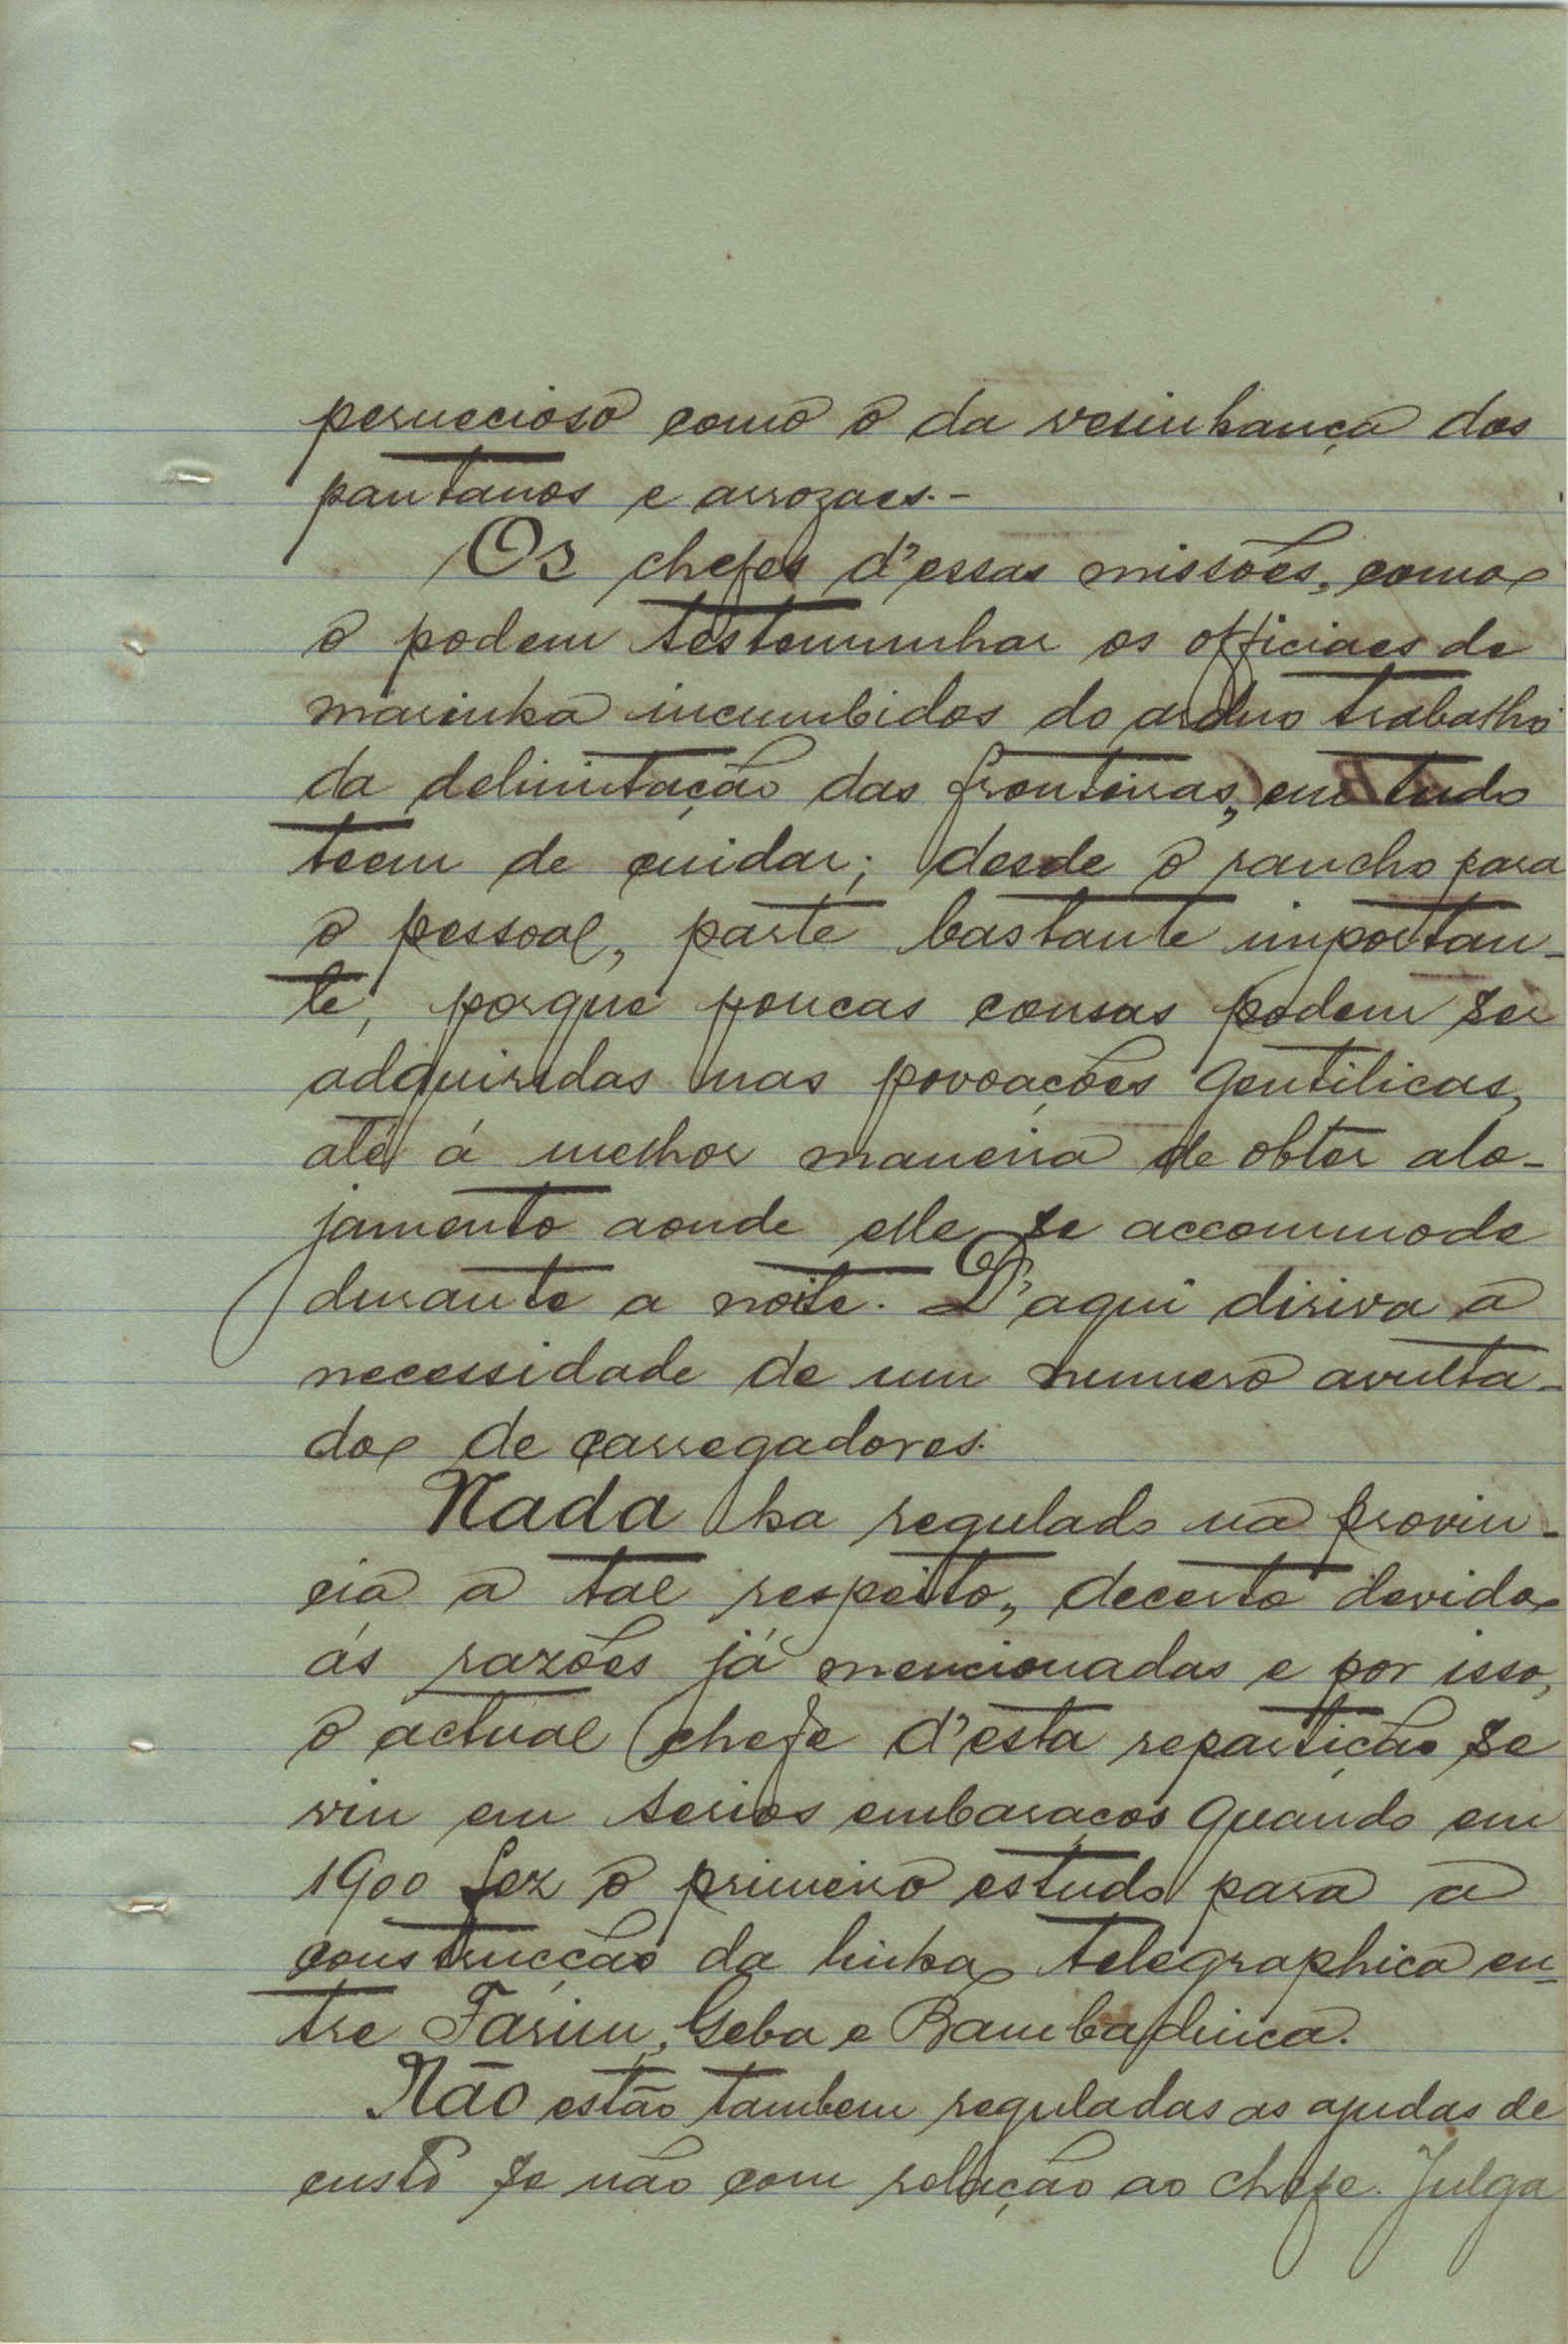 pernecioso como o da vesinhança dos
pantanos e arrozaes.-
Os chefes d'essas missões, como
o podem testemunhar os officiaes de
marinha incumbidos do arduo trabalho
da delimitação das fronteiras, em tudo
teem de cuidar; desde o rancho para
o pessoal, parte bastante importan-
te, porque poucas cousas podem ser
adquiridas nas povoações gentilicas,
até á melhor maneira de obter alo-
jamento aonde elle se accommode
durante a noite. D'aqui diriva a
necessidade de um numero avulta-
do de carregadores.
Nada ha regulado na provin-
cia a tal respeito, decerto devido
ás razões já mencionadas e por isso,
o actual chefe d'esta repartição se
viu em serios embaraços quando em
1900 fez o primeiro estudo para a
construcção da linha telegraphica en-
tre Farim, Geba e Bambadinca.
Não estão tambem reguladas as ajudas de
custo se não com relação ao chefe. Julga